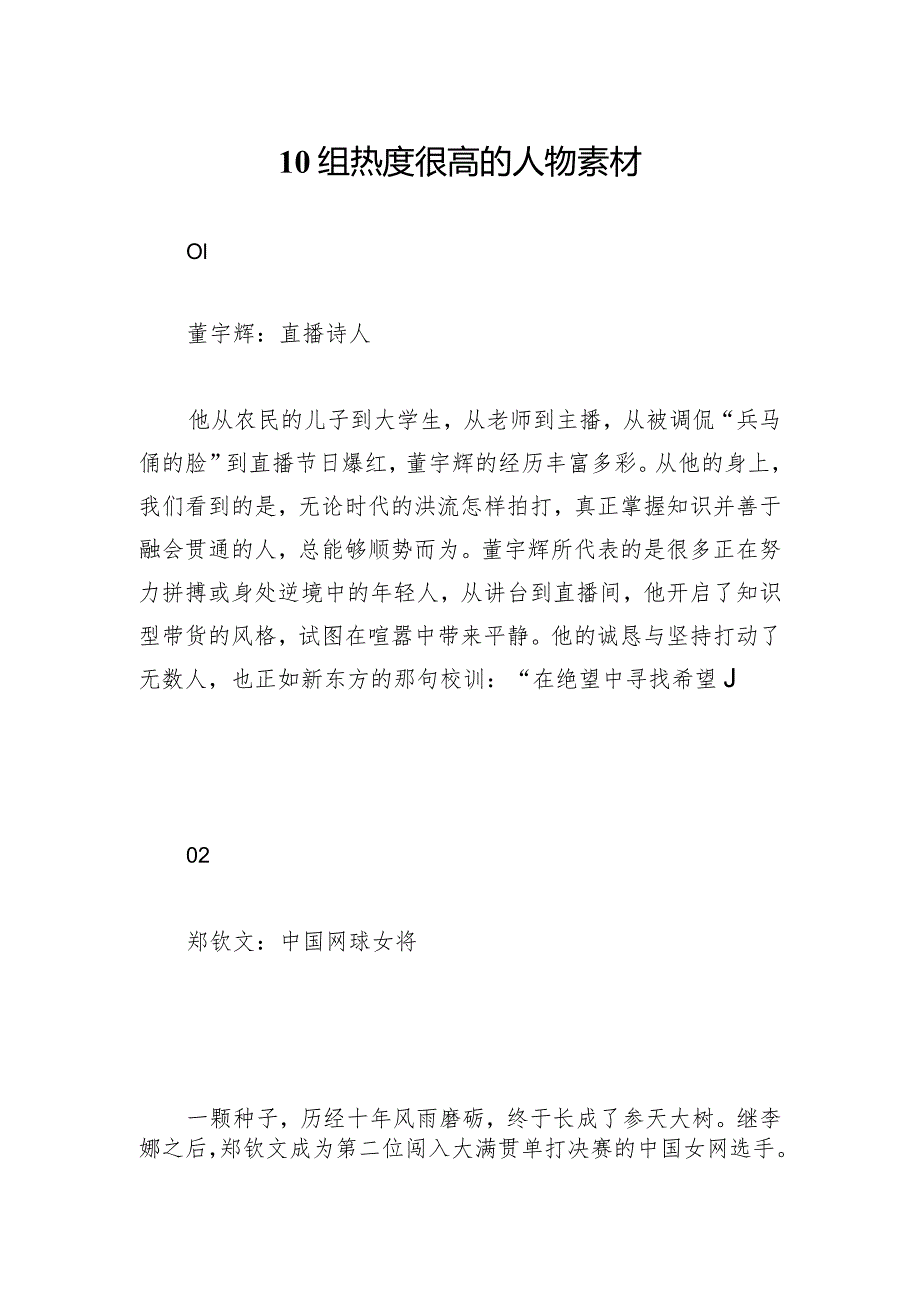 10组热度很高的人物素材
Ol
董宇辉：直播诗人
他从农民的儿子到大学生，从老师到主播，从被调侃“兵马
俑的脸”到直播节日爆红，董宇辉的经历丰富多彩。从他的身上，
我们看到的是，无论时代的洪流怎样拍打，真正掌握知识并善于
融会贯通的人，总能够顺势而为。董宇辉所代表的是很多正在努
力拼搏或身处逆境中的年轻人，从讲台到直播间，他开启了知识
型带货的风格，试图在喧嚣中带来平静。他的诚恳与坚持打动了
无数人，也正如新东方的那句校训：“在绝望中寻找希望J
02
郑钦文：中国网球女将
一颗种子，历经十年风雨磨砺，终于长成了参天大树。继李
娜之后,郑钦文成为第二位闯入大满贯单打决赛的中国女网选手。